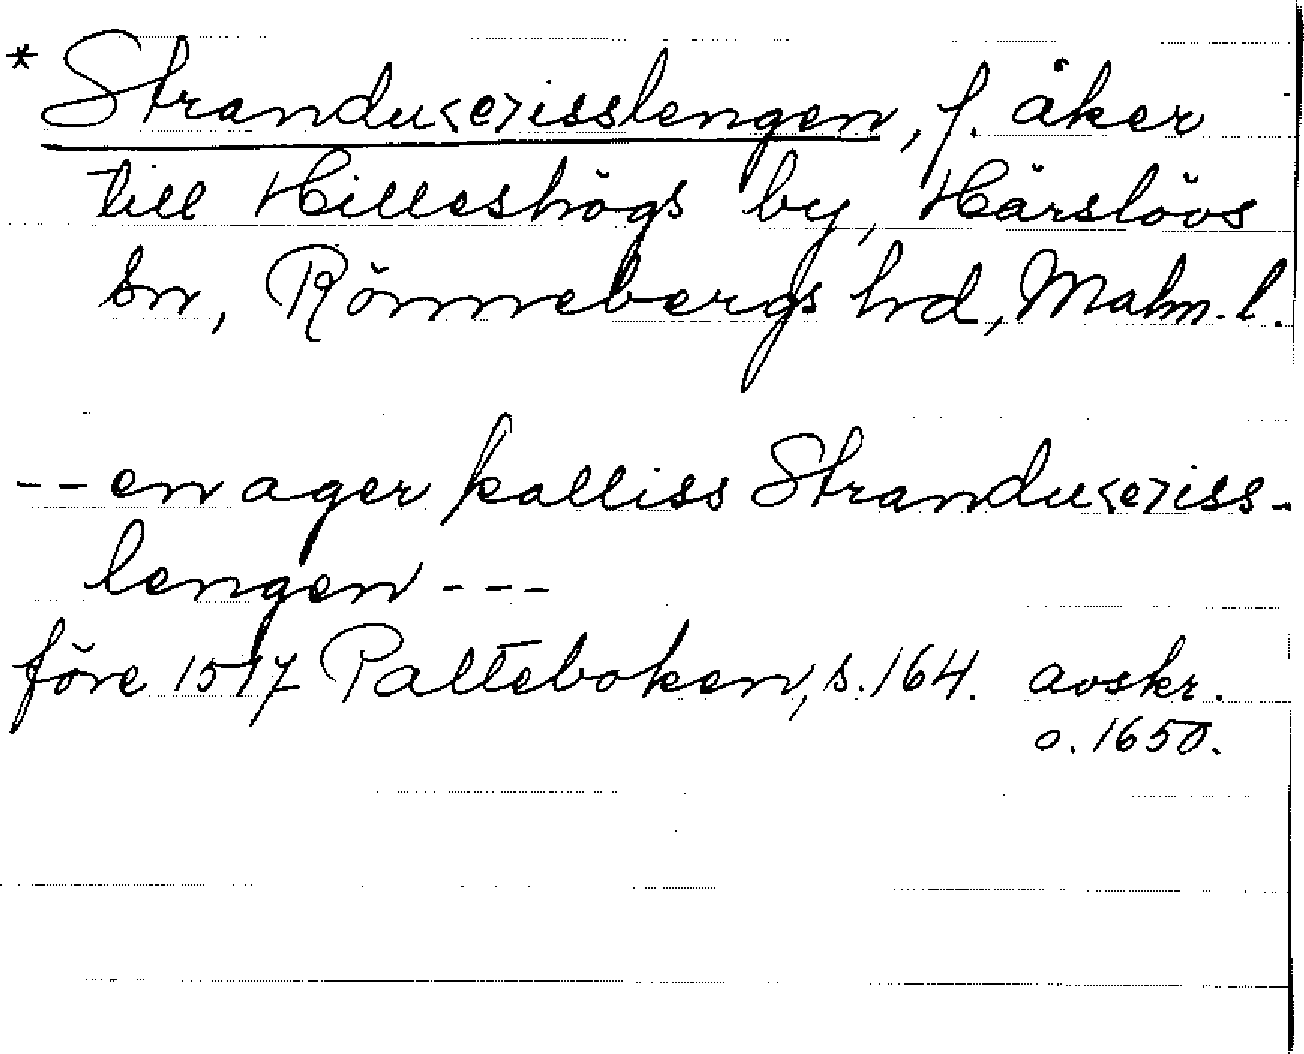 * Strandu<e>isslengen, f. åker
till Hilleshögs by, Härslövs
sn, Rönnebergs hd, Malm. l.
-- en ager kalliss Strandu<e>iss-
lengen ---
före 1517 Palteboken, s. 164. avskr.
o. 1650.